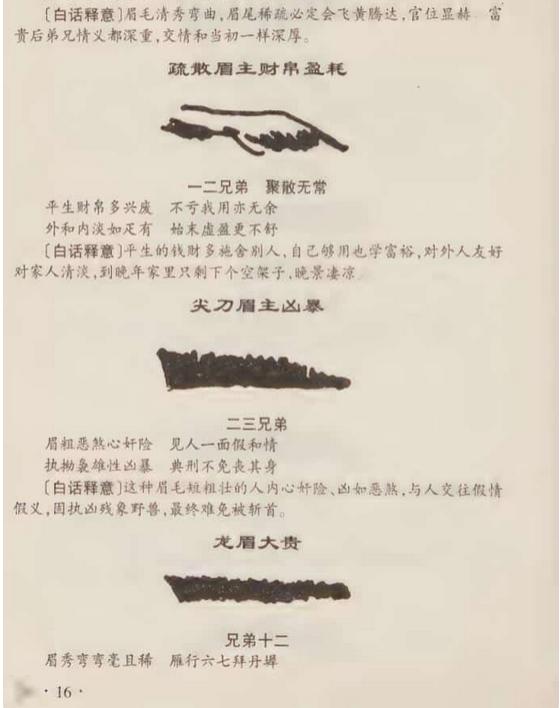 〔白话释意〕眉毛清秀弯曲,眉尾稀疏必定会飞黄腾达,官位显赫 富
贵后弟兄情义都深重,交情和当初一样深厚。
疏散眉主财帛盈耗
一二兄弟 聚散无常
平生财帛多兴废 不亏我用亦无余
外和内淡如疋有 始末虚盈更不舒
〔白话释意〕平生的钱财多施舍别人,自己够用也学富裕,对外人友好
对家人清淡,到晚年家里只剩下个空架子,晚景凄凉
尖刀眉主凶暴
二三兄弟
眉粗恶煞心奸险 见人一面假和情
执拗枭雄性凶暴 典刑不免丧其身
〔白话释意〕这种眉毛短粗壮的人内心奸险、凶如恶煞,与人交往假情
假义,固执凶残象野兽,最终难免被斩首。
龙眉大贵
兄弟十二
眉秀弯弯毫且稀 雁行六七拜丹墀
·16·